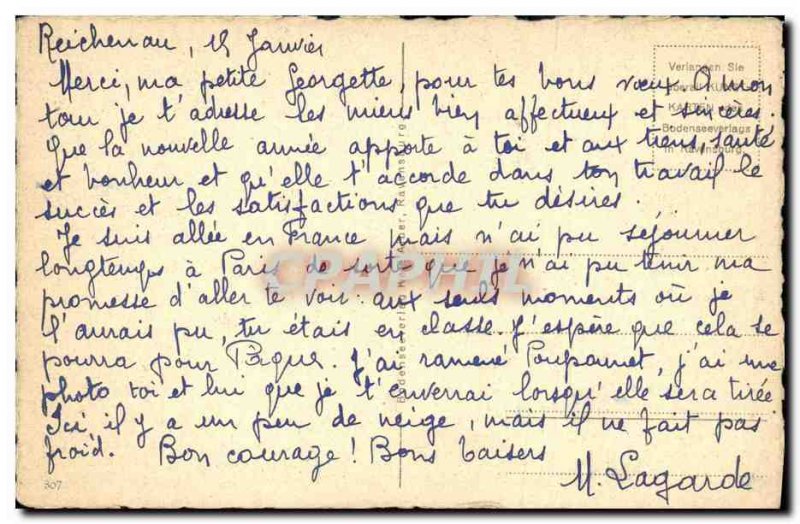 Reichenau, 15 Janvier
Merci, ma petite Georgette, pour tes bons vœux. A mon
tour je t'adresse les miens bien affectueux et sincères.
Que la nouvelle année apporte à toi et aux tiens, santé
et bonheur et qu'elle t'accorde dans ton travail le
succès et les satisfactions que tu désires.
Je suis allée en France mais n'ai pu séjourner
longtemps à Paris de sorte que je n'ai pu tenir ma
promesse d'aller te voir: aux seuls moments où je
l'aurais pu, tu étais en classe. J'espère que cela se
pourra pour Pâques. J'ai ramené Pouponnet, j'ai une
photo toi et lui que je t'enverrai lorsqu'elle sera tirée
Ici, il y a un peu de neige, mais il ne fait pas
froid. Bon courage! Bons baisers
M. Lagarde
Verlangen Sie
überall KUNST-
KARTEN
Bodenseeverlags
in Ravensburg
CPAPHIL
307